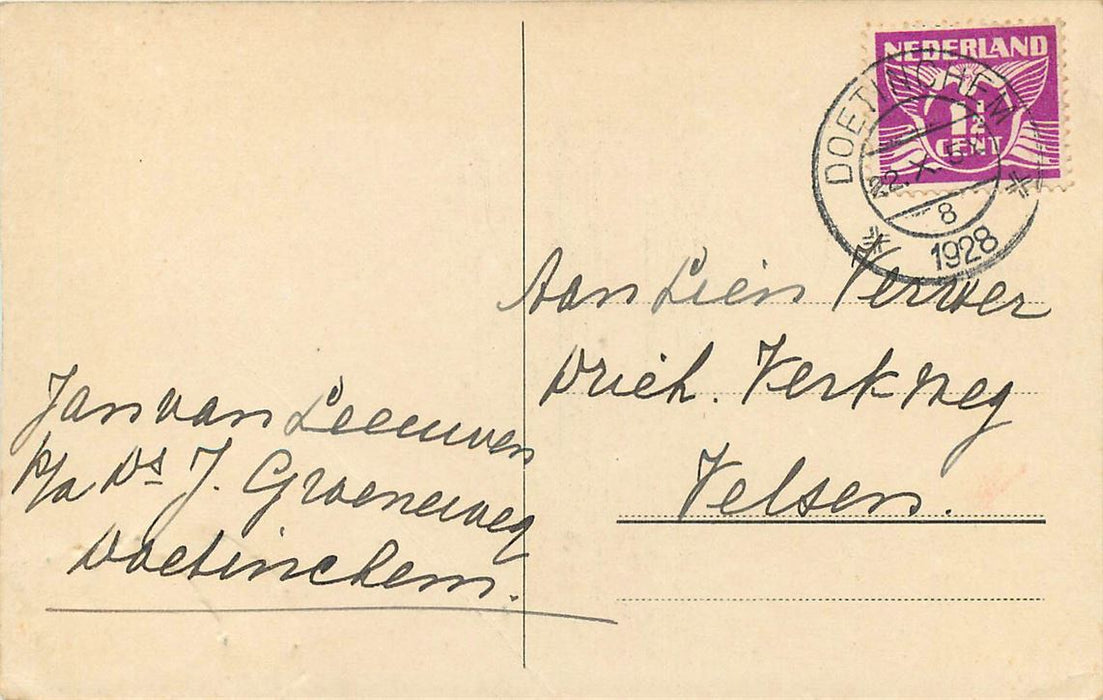 NEDERLAND
1½
CENT
DOETINCHEM
22.X.5
8
1928
Aan Lien Verwer
Drieh. Kerkweg
Velsen.
Jan van Leeuwen
p/a Ds J. Groeneweg
Doetinchem.